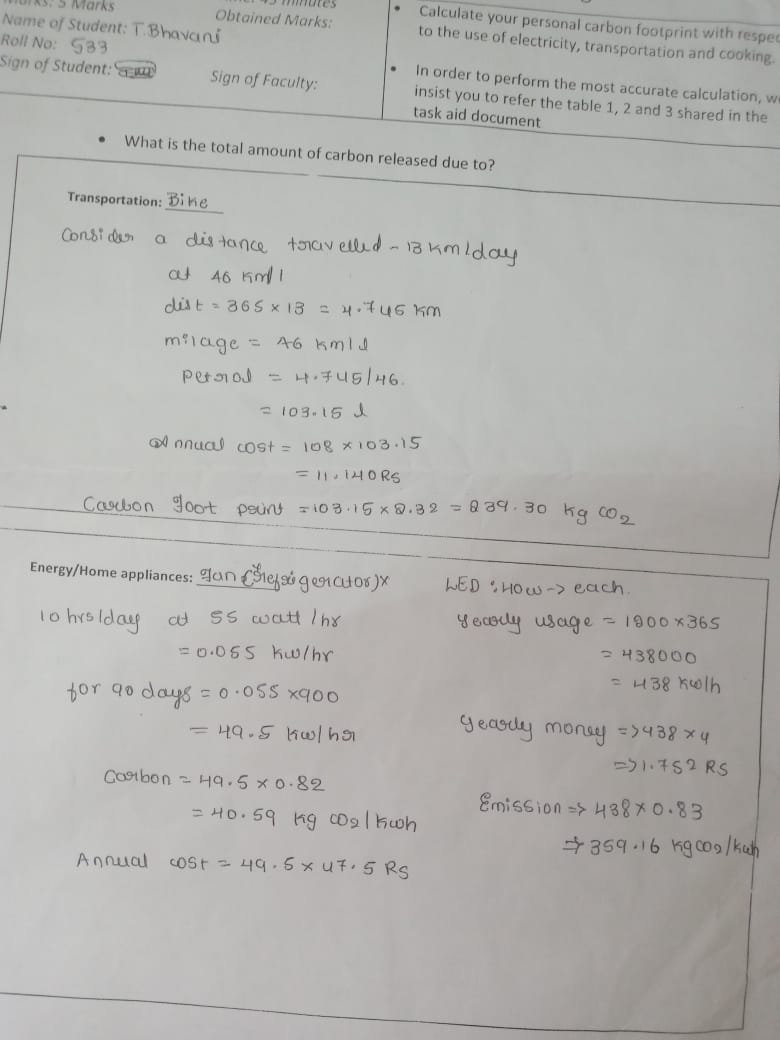 Marks: 5 Marks
minutes
Name of Student: T. Bhavani
Obtained Marks:
Roll No: 533
Sign of Student:
Sign of Faculty:
• Calculate your personal carbon footprint with respec
to the use of electricity, transportation and cooking.
• In order to perform the most accurate calculation, w
insist you to refer the table 1, 2 and 3 shared in the
task aid document
• What is the total amount of carbon released due to?
Transportation: Bike
Consider a distance travelled - 13 km/day
at 46 km/l
dist = 365 × 13 = 4.745 km
milage = 46 km/l
petrol = 4.745/46.
= 103.15 l
Annual cost = 108 × 103.15
= 11.140 RS
Carbon foot print = 103.15 × 2.32 = 239.30 kg CO2
Energy/Home appliances: fan (refrigerator)x
10 hrs/day at 55 watt/hr
= 0.055 kw/hr
for 90 days = 0.055 × 900
= 49.5 kw/hr
Carbon = 49.5 × 0.82
= 40.59 kg CO2/kwh
Annual cost = 49.5 × 47.5 RS
LED : 40w -> each.
yearly usage = 1200 × 365
= 438000
= 438 kw/h
yearly money => 438 × 4
=> 1.752 RS
Emission => 438 × 0.83
=> 359.16 kg CO2/kwh